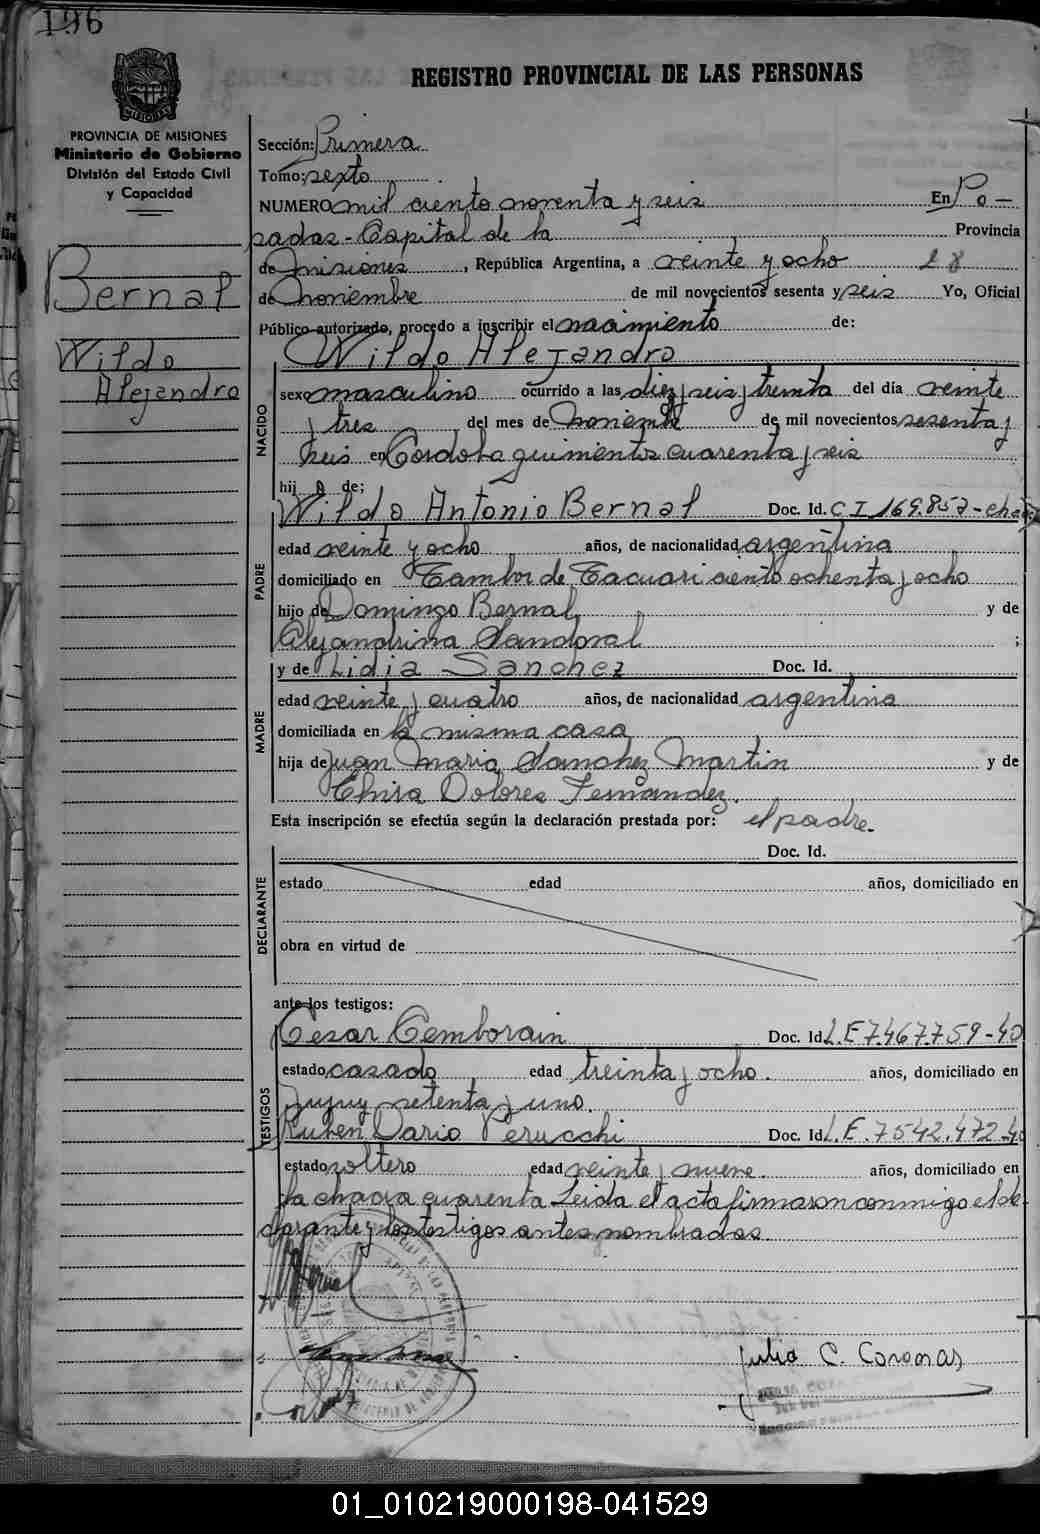 196
REGISTRO PROVINCIAL DE LAS PERSONAS
PROVINCIA DE MISIONES
Ministerio de Gobierno
División del Estado Civil
y Capacidad
Bernal
Wildo
Alejandro
Sección: Primera
Tomo: sexto
NUMERO mil ciento noventa y seis En Po-
sadas - Capital de la Provincia
de misiones, República Argentina, a veinte y ocho 28
de noviembre de mil novecientos sesenta y seis Yo, Oficial
Público autorizado, procedo a inscribir el nacimiento de:
Wildo Alejandro
NACIDO
sexo masculino ocurrido a las diez y seis y treinta del día veinte
y tres del mes de Noviembre de mil novecientos sesenta y
seis en Cordoba quinientos cuarenta y seis
hij o de;
PADRE
Wildo Antonio Bernal Doc. Id. C I 169.857-
edad veinte y ocho años, de nacionalidad argentina
domiciliado en Tambor de Tacuari ciento ochenta y ocho
hijo de Domingo Bernal y de
Alejandrina Sandoval ;
MADRE
y de Lidia Sanchez Doc. Id.
edad veinte y cuatro años, de nacionalidad argentina
domiciliada en la misma casa
hija de Juan Maria Sanchez Martin y de
Elvira Dolores Fernandez.
Esta inscripción se efectúa según la declaración prestada por: el padre.
DECLARANTE
Doc. Id.
estado edad años, domiciliado en
obra en virtud de
ante los testigos:
TESTIGOS
Cesar Cemborain Doc. Id. L.E 7.467.759-40
estado casado edad treinta y ocho. años, domiciliado en
Jujuy setenta y uno.
Ruben Dario Perucchi Doc. Id. L.E. 7.542.472-40
estado soltero edad veinte y nueve. años, domiciliado en
la chacra cuarenta Leida el acta firmaron conmigo el de-
clarante y los testigos antes nombrados.
Julio C. Coronas
01_010219000198-041529